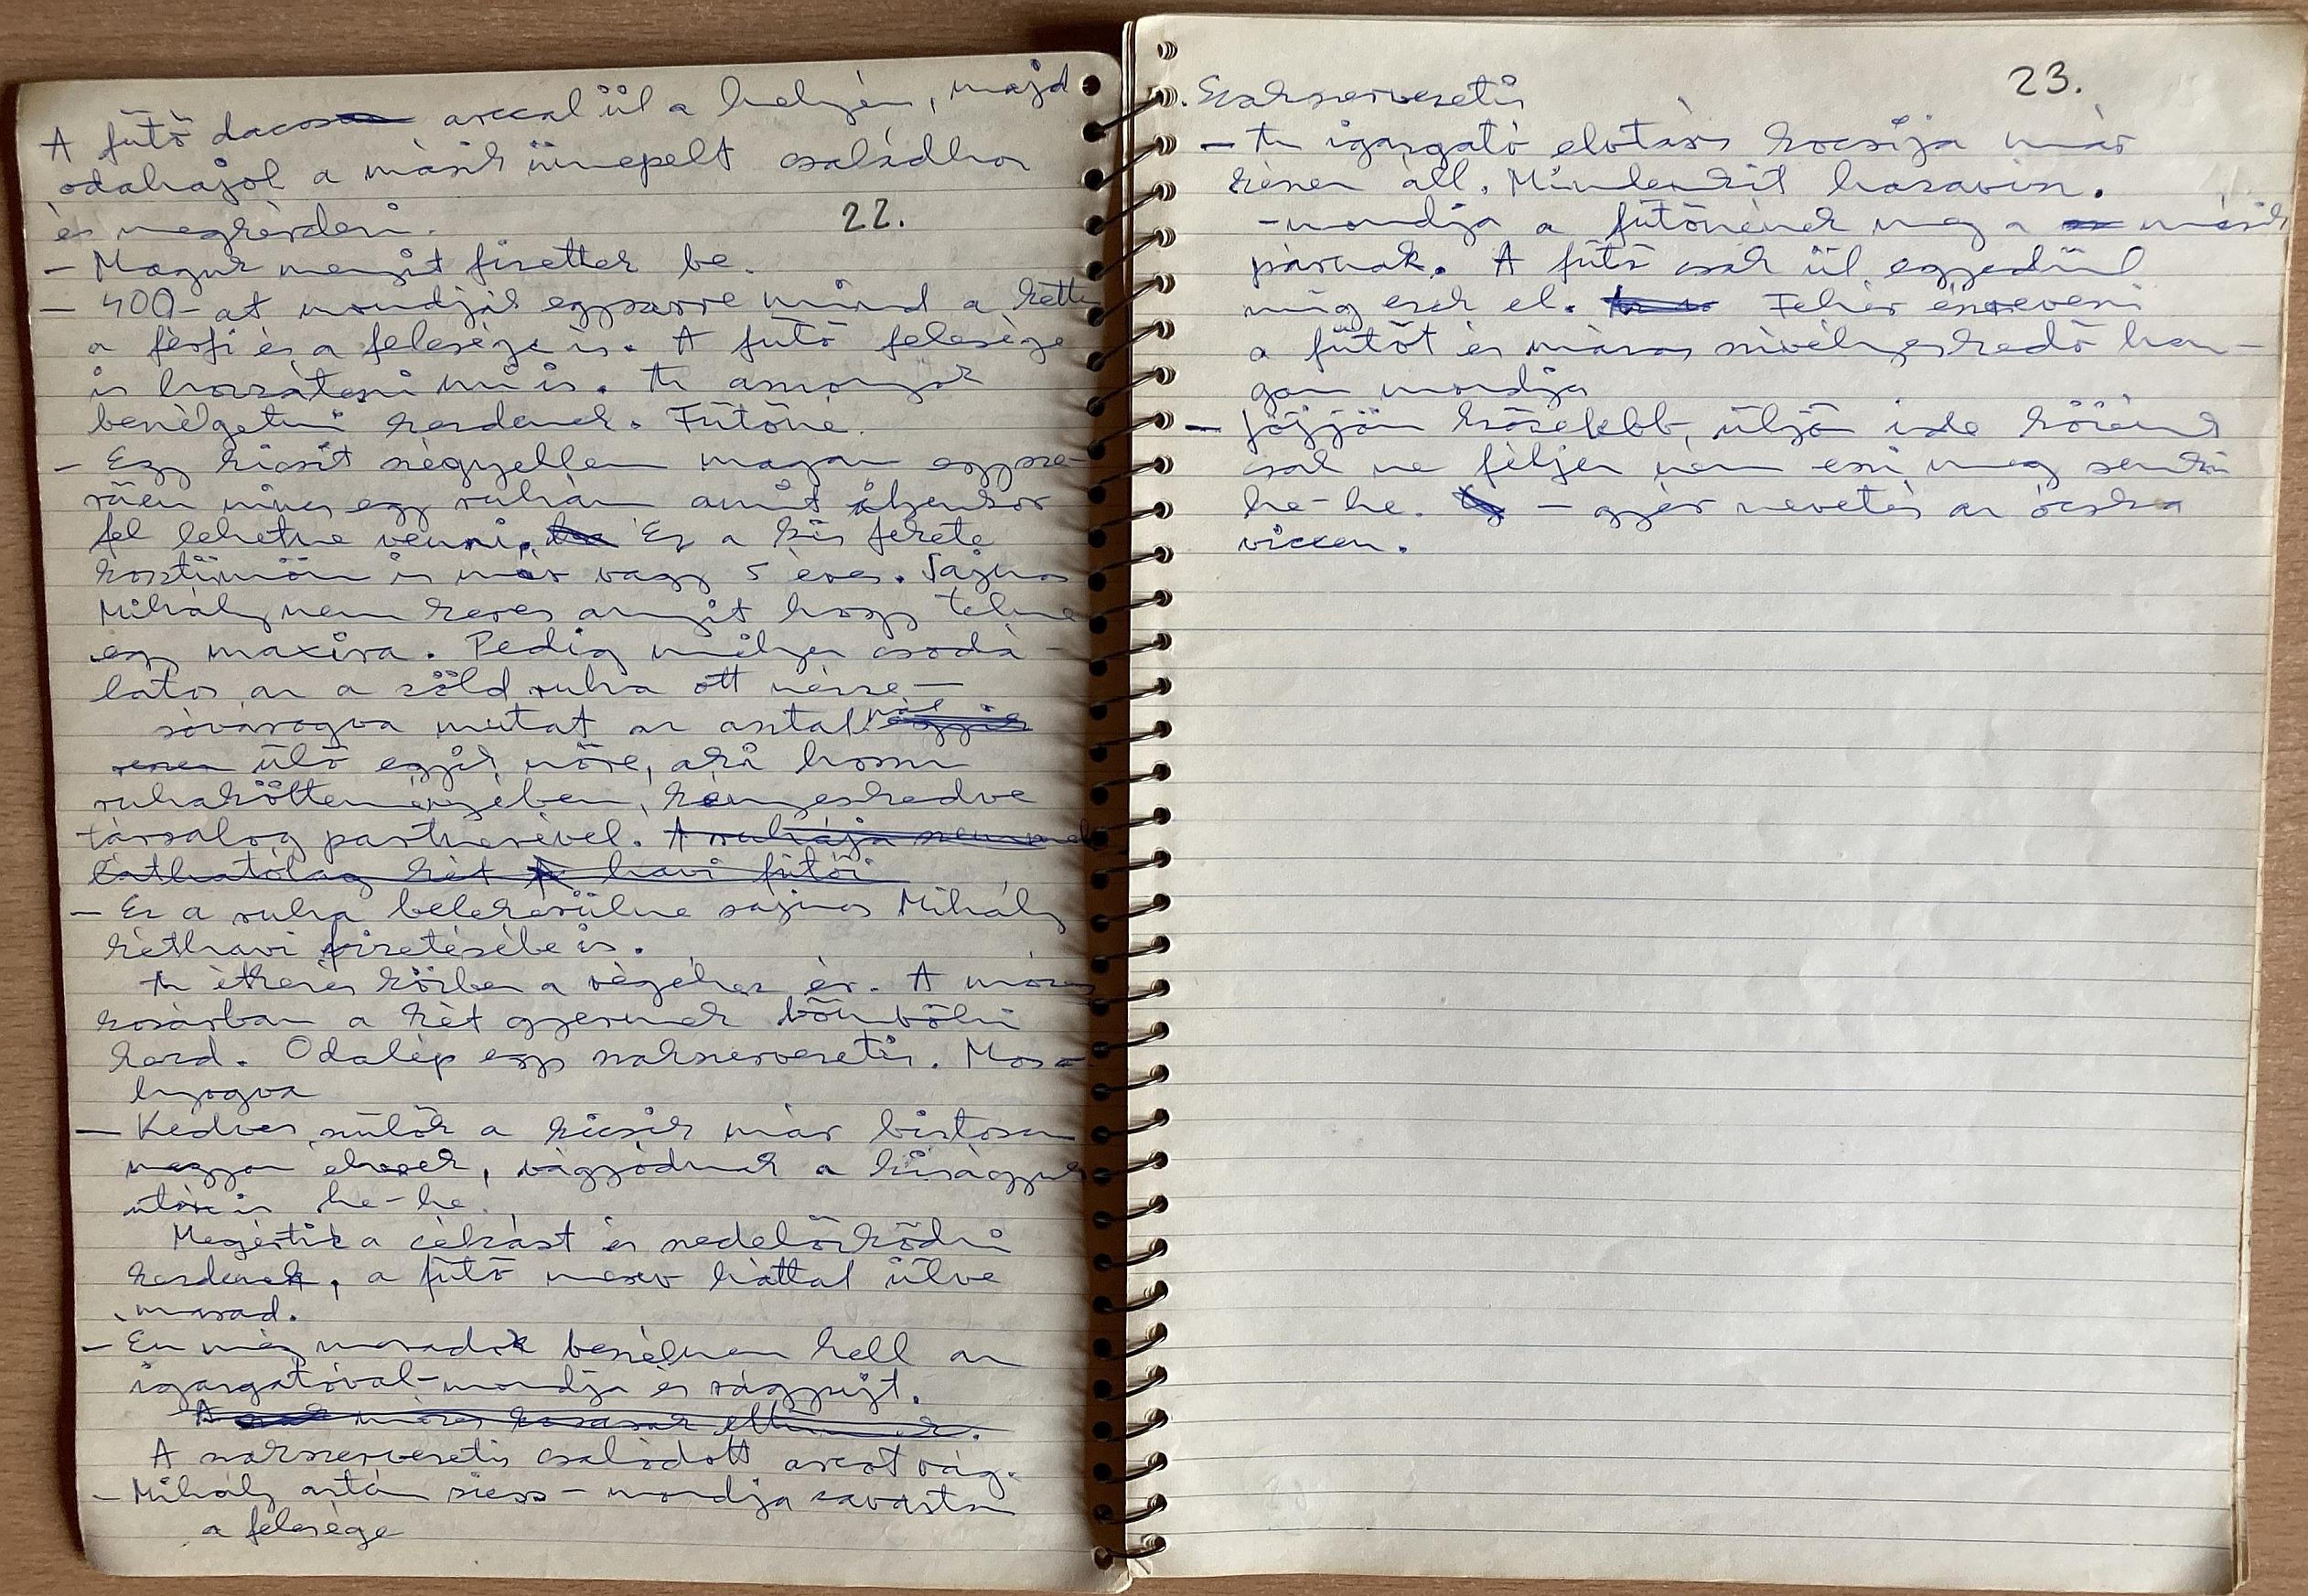 A fűtő dacosan arccal ül a helyén, majd
odahajol a másik ünnepelt családhoz
és megkérdezi.
22.
- Maguk mennyit fizettek be.
- 400-at mondják egyszerre mind a kettő
a férfi és a felesége is. A fűtő felesége
is hozzáteszi mi is. Az asszonyok
beszélgetni kezdenek. Fűtőné.
- Egy kicsit szégyellem magam egysze-
rűen nincs egy ruhám amit ilyenkor
fel lehetne venni. Ez a kis fekete
kosztümöm is már vagy 5 éves. Sajnos
Mihály nem keres annyit hogy telne
egy maxira. Pedig milyen csodá-
latos az a zöld ruha ott nézze -
sóvárogva mutat az asztalnál
ülő egyik nőre, aki hosszú
ruhakölteményében, kényeskedve
társalog partnerével. A ruhája
láthatólag két havi fűtői
- Ez a ruha belekerülne sajnos Mihály
kéthavi fizetésébe is.
Az étkezés közben a végéhez ér. A mózes
kosárban a két gyermek bömbölni
kezd. Odalép egy szakszervezetis. Moso-
lyogva
- Kedves szülők a kicsik már biztosan
nagyon éhesek, vágyódnak a kiságyuk
után is he-he.
Megértik a célzást és szedelőzködni
kezdenek, a fűtő merev háttal ülve
marad.
- Én még maradok beszélnem kell az
igazgatóval - mondja és rágyujt.
A mózes kosarak eltűnnek.
A szakszervezetis csalódott arcot vág.
- Mihály aztán siess - mondja zavartan
a felesége
23.
Szakszervezetis
- Az igazgató elvtárs kocsija már
készen áll. Mindenkit hazavisz.
- mondja a fűtőnének meg a másik
párnak. A fűtő csak ül egyedül
míg ezek el. Fehér észreveszi
a fűtőt és máris szívélyeskedő han-
gon mondja
- Jöjjön közelebb, üljön ide közénk
csak ne féljen nem eszi meg senki
he-he. - gyér nevetés az ócska
viccen.